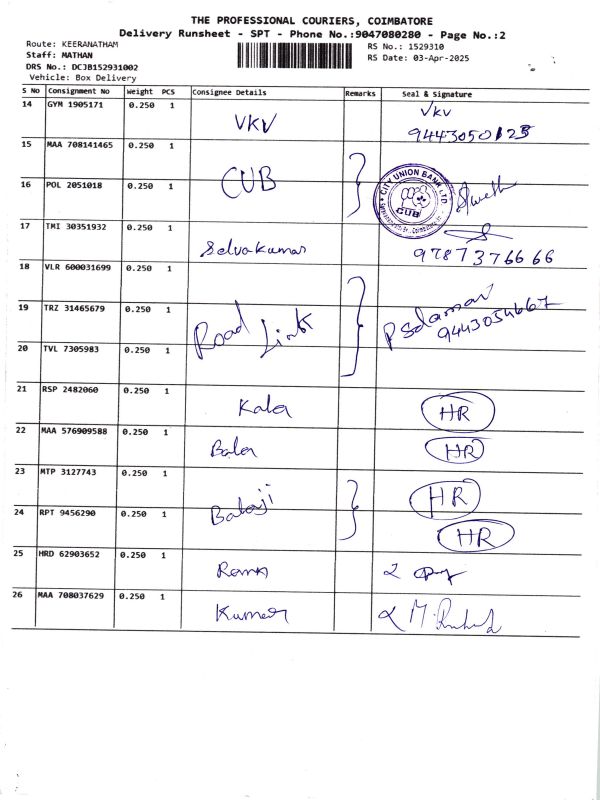 THE PROFESSIONAL COURIERS, COIMBATORE
Delivery Runsheet - SPT - Phone No.:9047080280 - Page No.:2
Route: KEERANATHAM
RS No.: 1529310
Staff: MATHAN
RS Date: 03-Apr-2025
DRS No.: DCJB152931002
Vehicle: Box Delivery
S No Consignment No Weight PCS Consignee Details Remarks Seal & Signature
14 GYM 1905171 0.250 1 VKV VKV
9443050123
15 MAA 708141465 0.250 1
CUB
CITY UNION BANK LTD.
CUB
16 POL 2051018 0.250 1
17 TMI 30351932 0.250 1 Selvakumar
9787376666
18 VLR 600031699 0.250 1
19 TRZ 31465679 0.250 1 Road Link
9443054667
20 TVL 7305983 0.250 1
21 RSP 2482060 0.250 1 Kala HR
22 MAA 576909588 0.250 1 Bala HR
23 MTP 3127743 0.250 1 Balaji HR
24 RPT 9456290 0.250 1 HR
25 HRD 62903652 0.250 1
26 MAA 708037629 0.250 1 Kumar